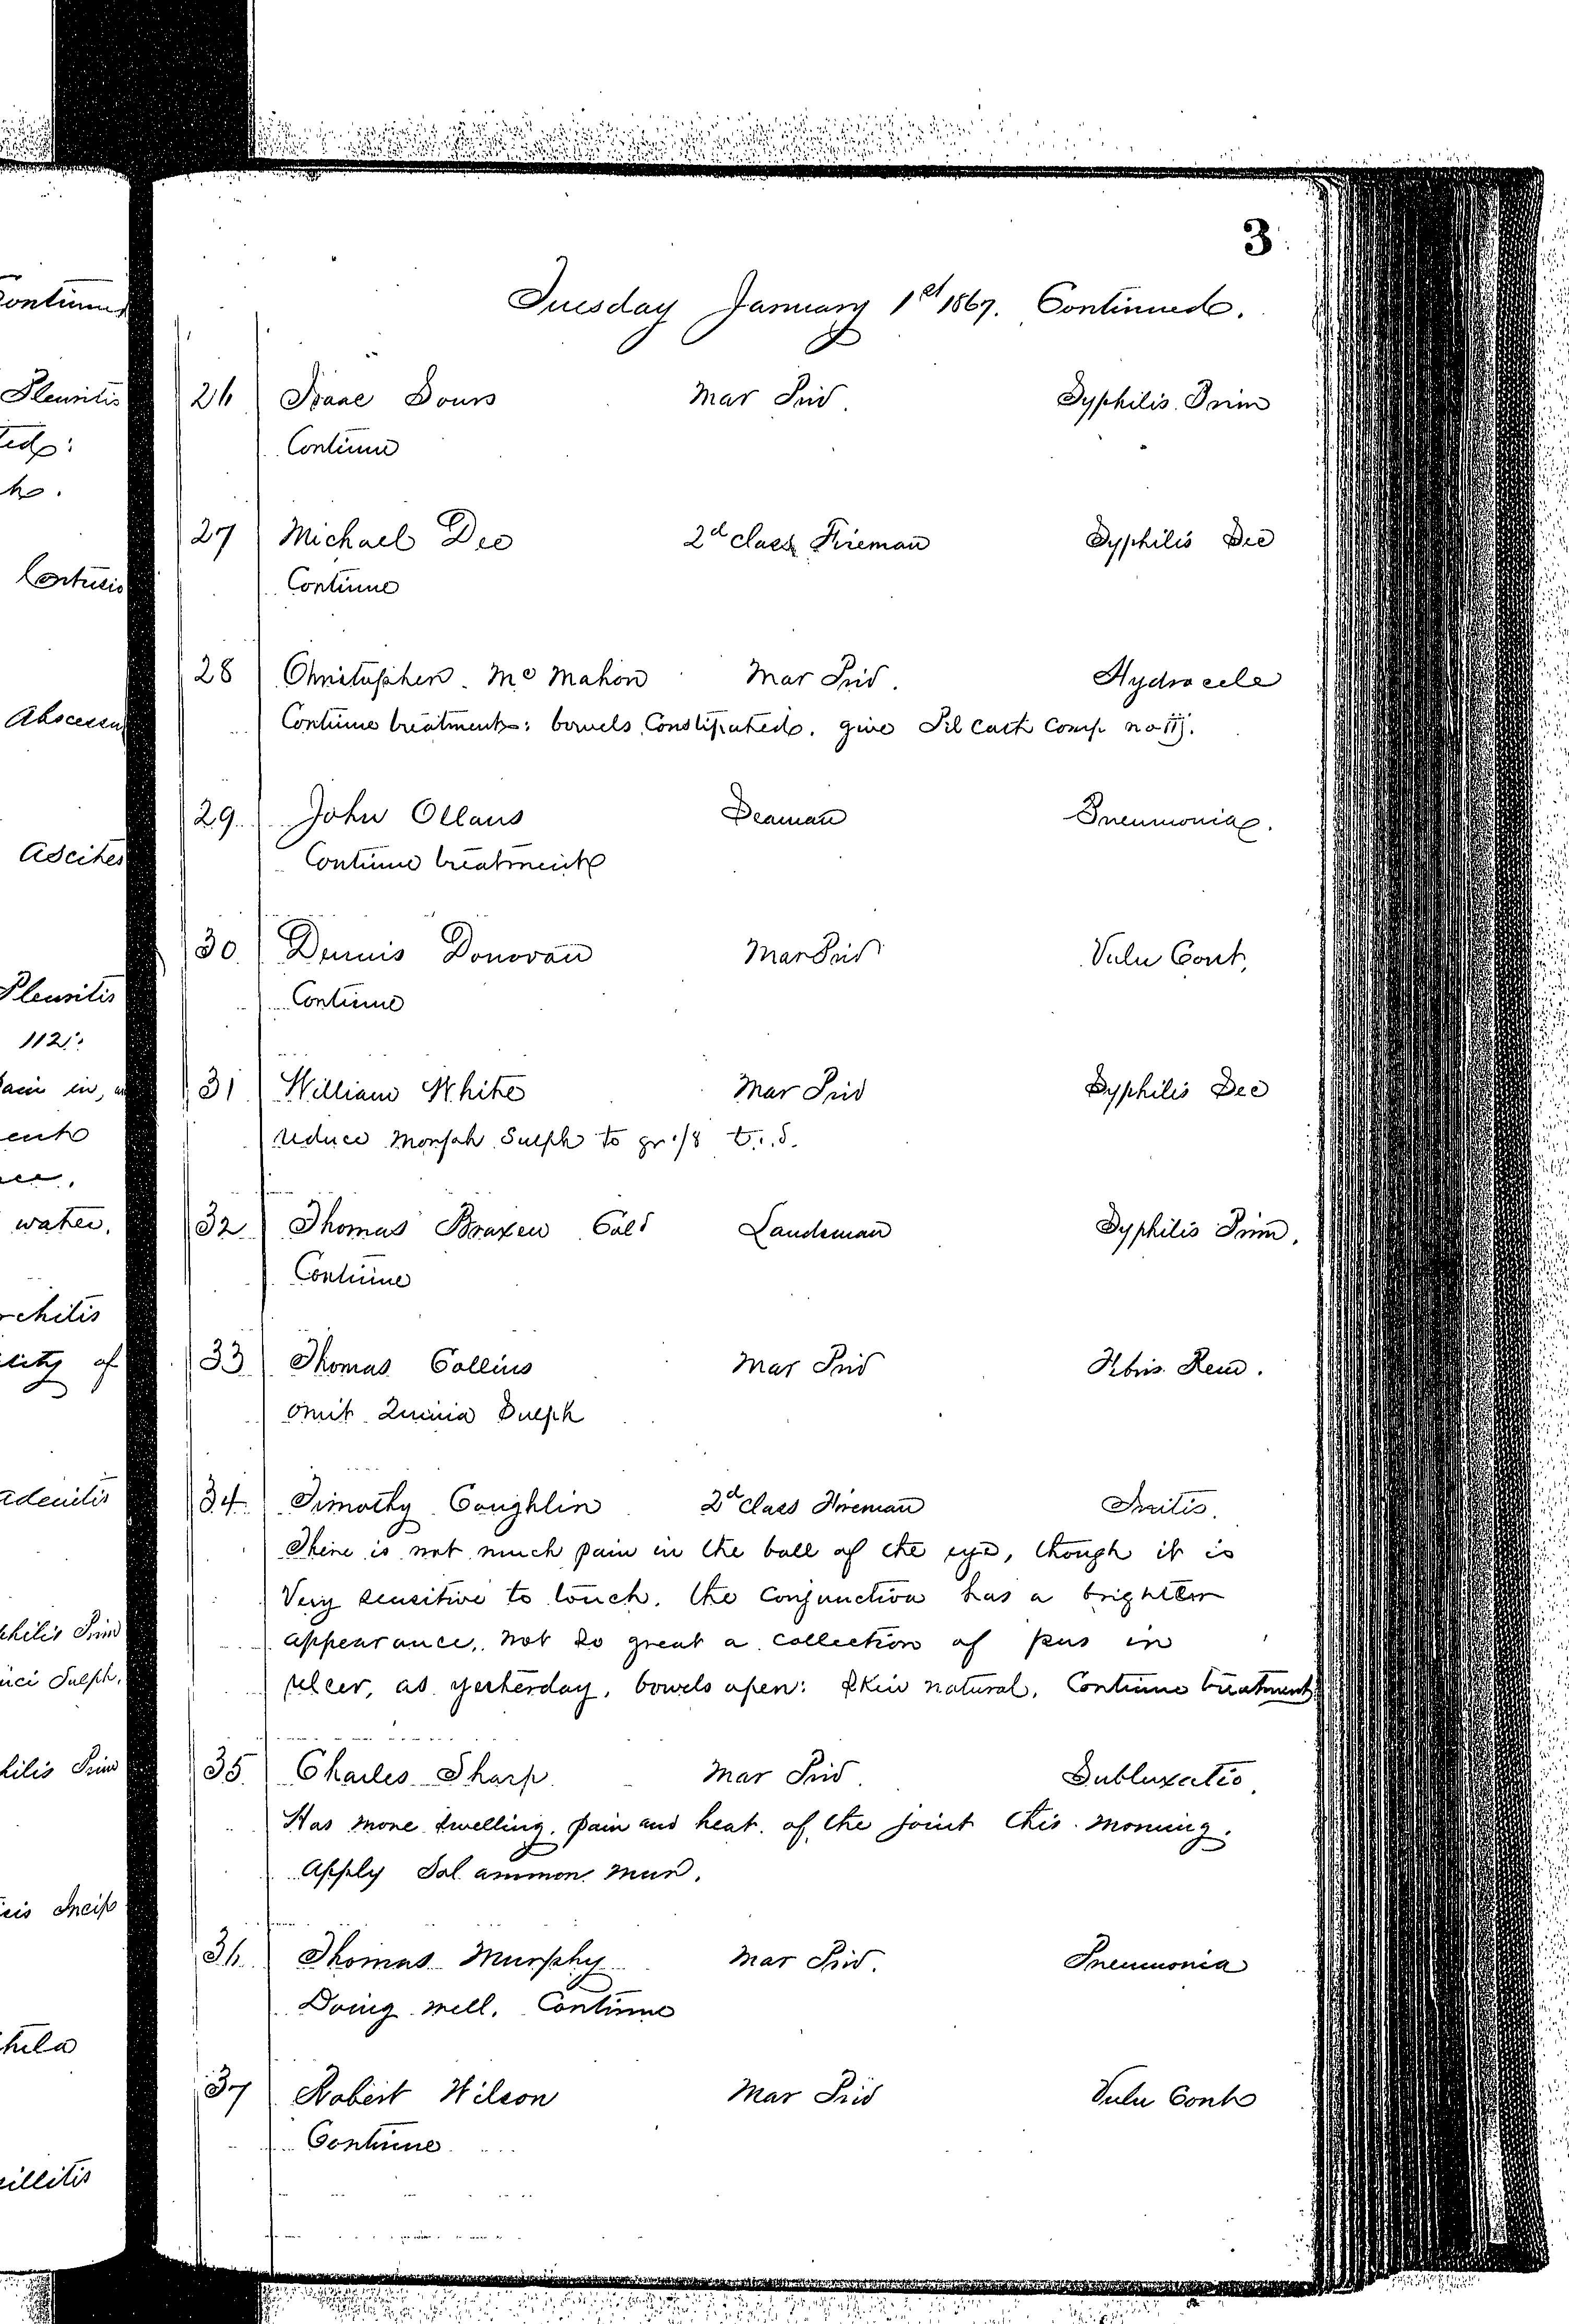 3
Tuesday January 1st 1867. Continued.
26 Isaac Sours Mar Priv. Syphilis Prim
Continue
27 Michael Dee 2d class Fireman Syphilis Sec
Continue
28 Christopher Mc Mahon Mar Priv. Hydrocele
Continue treatment: bowels Constipated. give Pil Cath Comp no iij.
29 John Ollaus Seaman Pneumonia.
Continue treatment
30 Dennis Donovan Mar Priv Vuln Cont.
Continue
31 William White Mar Priv Syphilis Sec
reduce Morph Sulph to gr 1/8 t.i.d.
32 Thomas Braxen Col'd Landsman Syphilis Prim.
Continue
33 Thomas Collins Mar Priv Febris Rem.
omit Quinia Sulph
34 Timothy Coughlin 2d Class Fireman Iritis.
There is not much pain in the ball of the eye, though it is
Very sensitive to touch. the Conjunctiva has a brighter
appearance, not so great a collection of pus in
ulcer, as yesterday, bowels open: skin natural. Continue treatment
35 Charles Sharp Mar Priv. Subluxatio.
Has more swelling. pain and heat of the joint this morning.
Apply Sol ammon Mur.
36 Thomas Murphy Mar Priv. Pneumonia
Doing well. Continue
37 Robert Wilson Mar Priv Vuln Cont
Continue